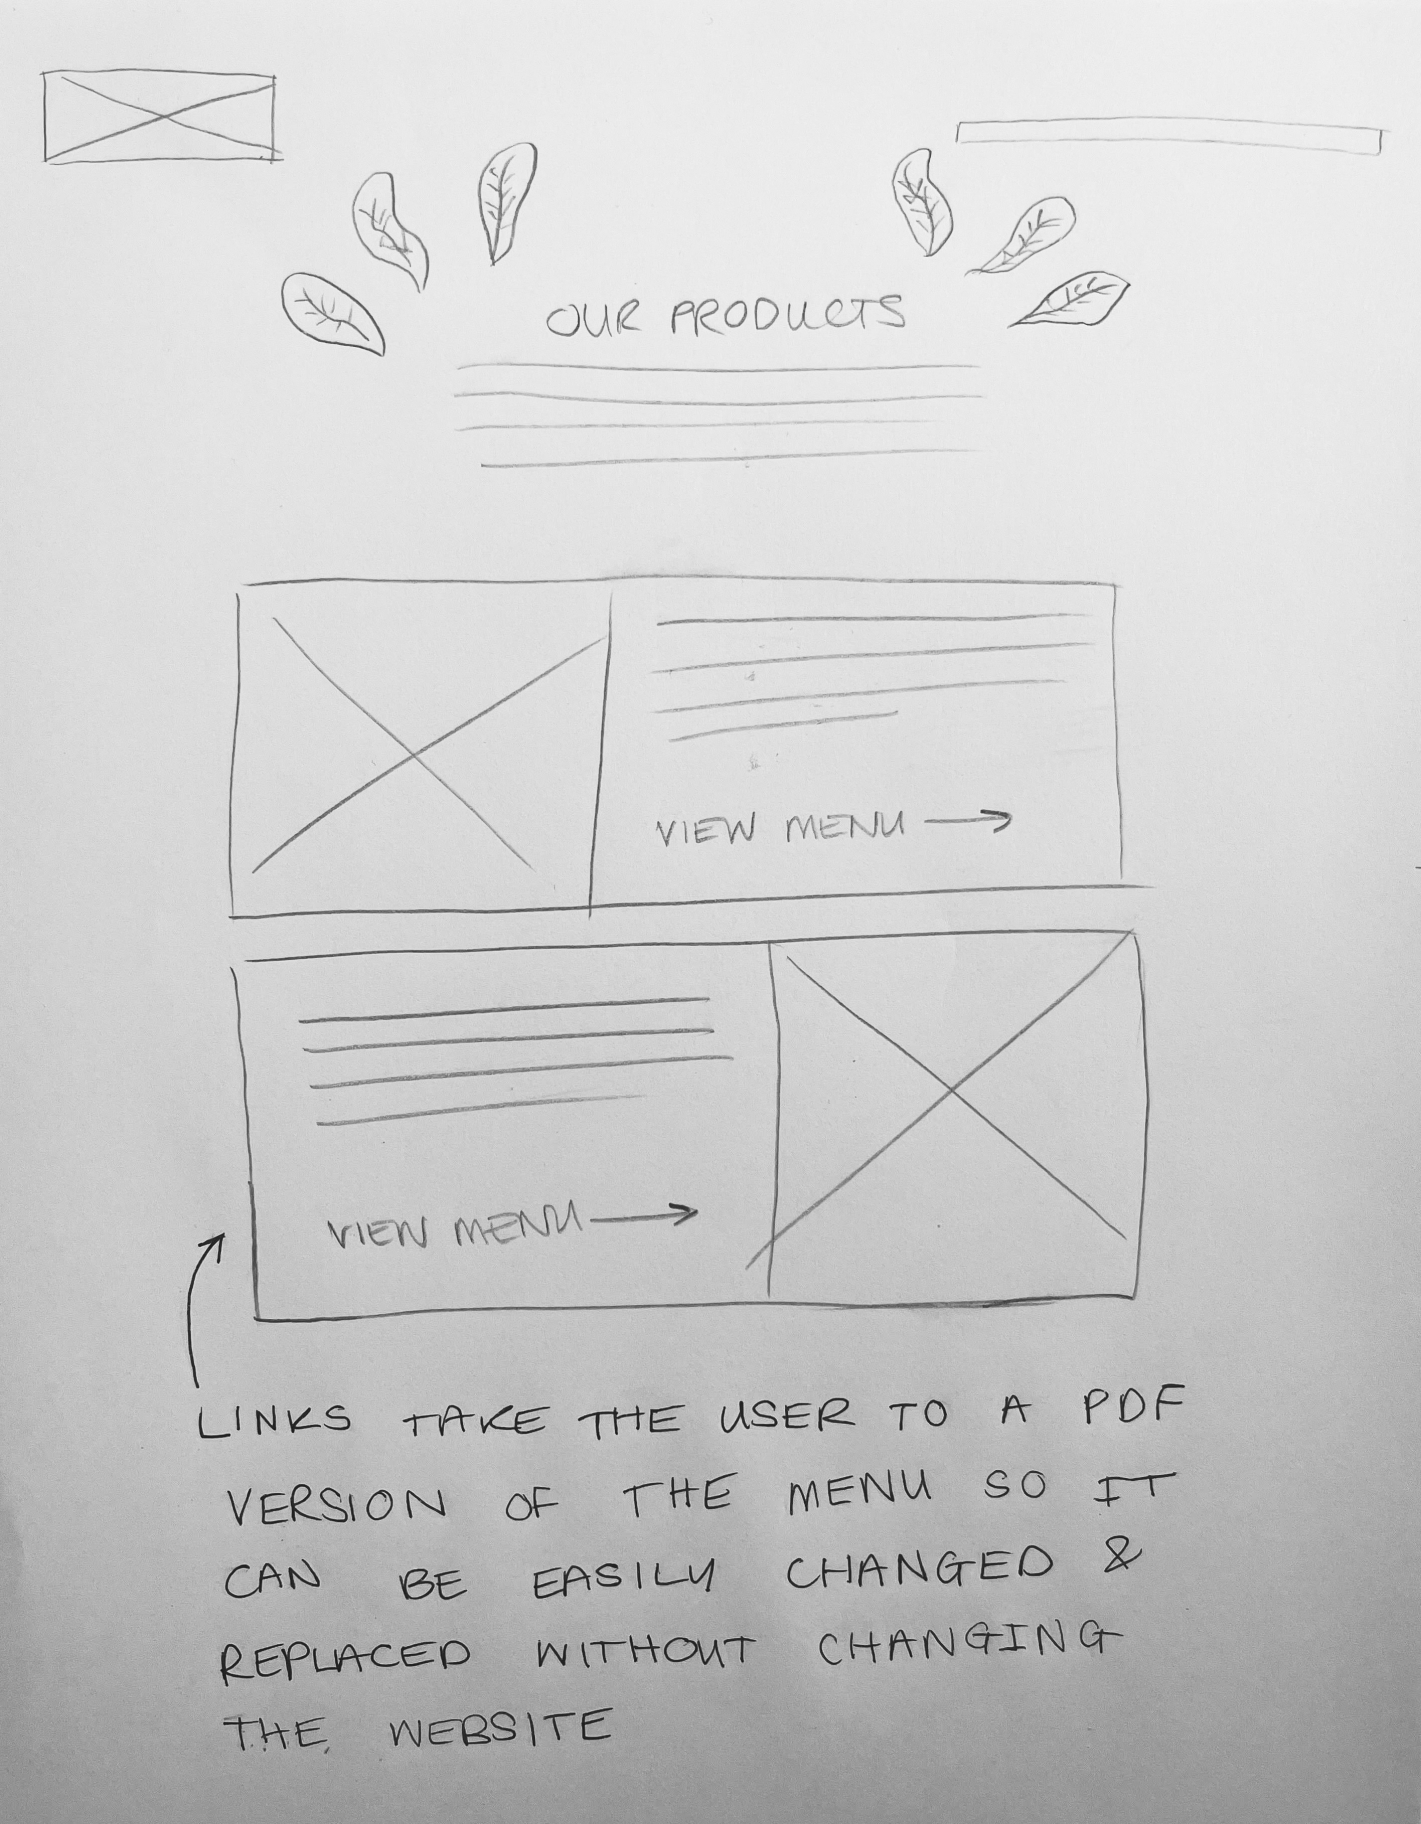 OUR PRODUCTS
VIEW MENU
VIEW MENU
LINKS TAKE THE USER TO A PDF
VERSION OF THE MENU SO IT
CAN BE EASILY CHANGED &
REPLACED WITHOUT CHANGING
THE WEBSITE